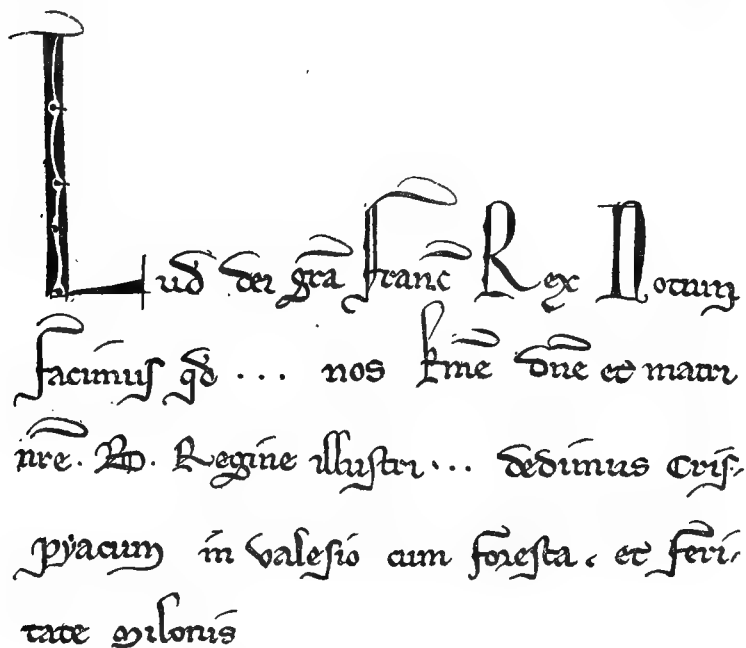 Lud dei gra Franc Rex Notum
facimus qd ... nos kme dne et matri
nre. B. Regine illustri... dedimus Cris-
pyacum in valesio cum foresta. et feri-
tate milonis